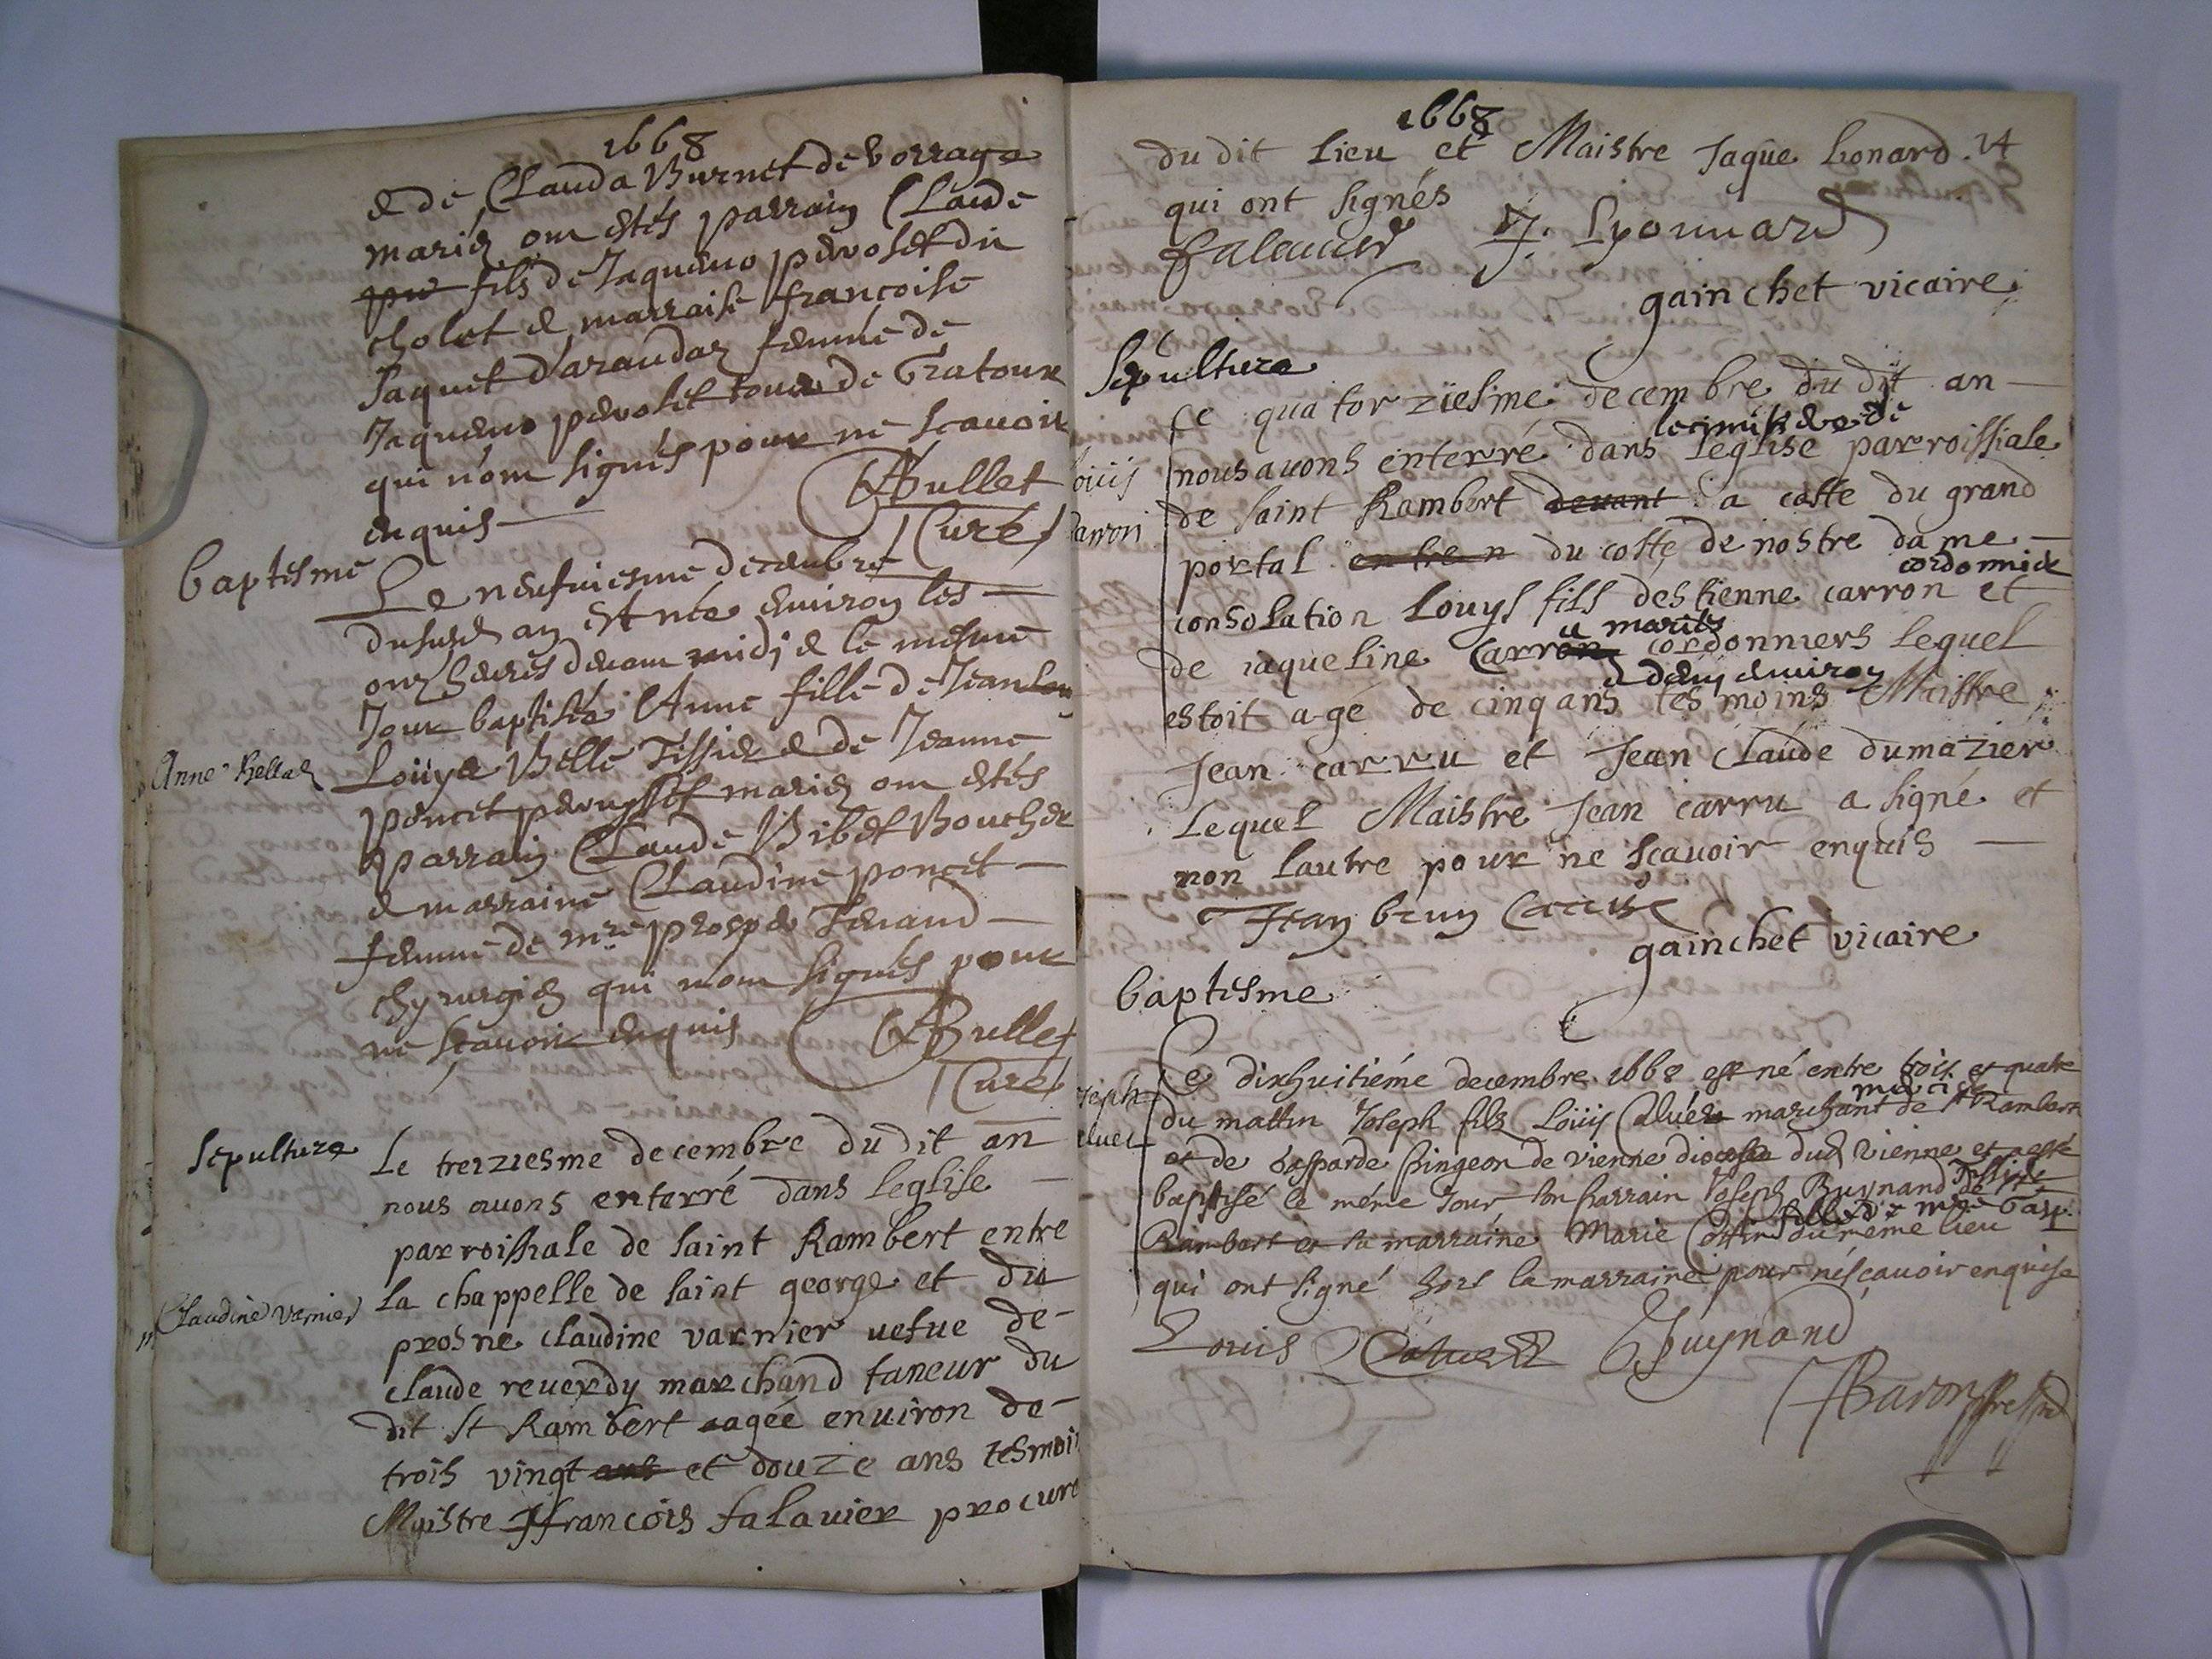 1668
& de Clauda Burnet de vorrage
mariez ont estés parrain Claude
fils de Jaquemo pervolet dit
cholet & marraise francoise
Jaquet d'arandaz femme de
Jaquemo pervolet tous de Gratoux
qui n'ont signés pour ne scavoir
enquis
ABullet
Curé
baptesme
Le neufuiesme decembre
dususd an est née environ les
onz heures devant midj & le mesme
Jour baptisée Anne fille de Jean
Anne Bellet
Louys Belle Tissier & de Jeanne
poncet mariez ont estés
parrain Claude Bibet Boucher
& marraine Claudine poncet
femme de mre prosper Tenand
chyrurgien qui n'ont signés pour
ne scavoir enquis
ABullet
Curé
sepulture
Le treiziesme decembre du dit an
nous avons enterré dans leglise
parroissiale de saint Rambert entre
la chappelle de saint george et du
Claudine varnier
prosne claudine varnier uefue de
claude reuerdy marchand taneur du
dit st Rambert aagée enuiron de
trois vingt ans et douze ans tesmoin
Maistre ffrancois falauier procure
1668
du dit lieu et Maistre Jaque Lionard 14
qui ont signés
falauier J. Lyonnard
gainchet vicaire
Sepulture
Ce quatorziesme decembre du dit an
le cimistere de
nous auons enterré dans leglise parroissiale
ouis
de saint Rambert deuant a coste du grand
carron
portal entre n du coste de nostre dame
cordonnier
consolation Louys fils destienne carron et
u mariés
de iaqueline Carron cordonniers lequel
& demj environ
estoit agé de cinq ans tesmoins Maistre
Jean carru et Jean Claude dumazier
Lequel Maistre Jean carru a signé et
non lautre pour ne scauoir enquis
Jean brun Carru
gainchet vicaire
baptesme
Ce dixhuitiéme decembre 1668 est né entre trois et quatre
oseph
du mattin Joseph fils Loüis Caluet marchant de st Rambert
aluet
et de Gasparde pingeon de vienne diocese dud vienne et a esté
baptisé le méme Jour son parrain Joseph Buynand de st
fille de mre Gasp.
Rambert et sa marraine Marie Cottin du méme lieu
qui ont signé hors la marraine pour ne scauoir enquise
Louis Caluet Buynand
Baron